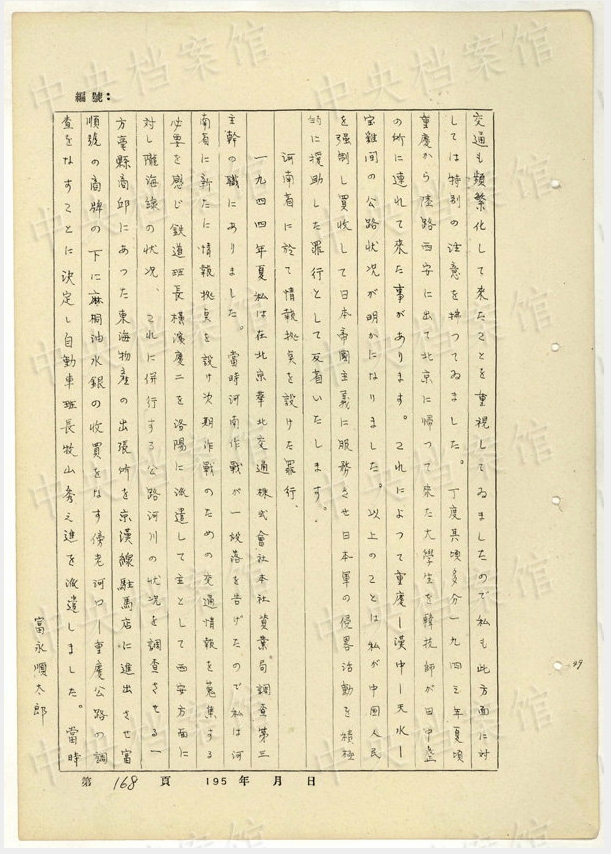 編號：
交通も頻繁化して来たことを重視してゐましたので私も此方面に対
しては特別の注意を拂つてゐました。丁度其頃多分一九四三年夏頃
重慶から陸路西安に出て北京に帰つて来た大學生を韓技師が田中
の所に連れて来た事があります。これによつて重慶ー漢中ー天水ー
宝雞间の公路状况が明かになりました。以上のことは私が中国人民
を强制し買收して日本帝國主義に服務させ日本軍の侵畧活動を積極
的に援助した罪行として反省いたします。
河南省に於て情報拠点を設けた罪行、
一九四四年夏私は在北京華北交通株式會社本社資業局調査第三
主幹の職にありました。當時河南作戰が一段落を告げたので私は河
南省に新たに情報拠点を設け次期作戰のための交通情報を蒐集する
必要を感じ鉄道班長橫濱慶二を洛陽に派遣して主として西安方面に
対し隴海線の状况、これに併行する公路河川の状况を調査させる一
方亳縣商邱にあつた東海物産の出張所を京漢線駐馬店に進出させ富
順號の商牌の下に麻桐油水銀の收買をなす傍老河口ー重慶公路の調
査をなすことに決定し自動車班長牧山秀之進を派遣しました。當時
富永順太郎
第 168 頁 195 年 月 日
99
中央档案馆